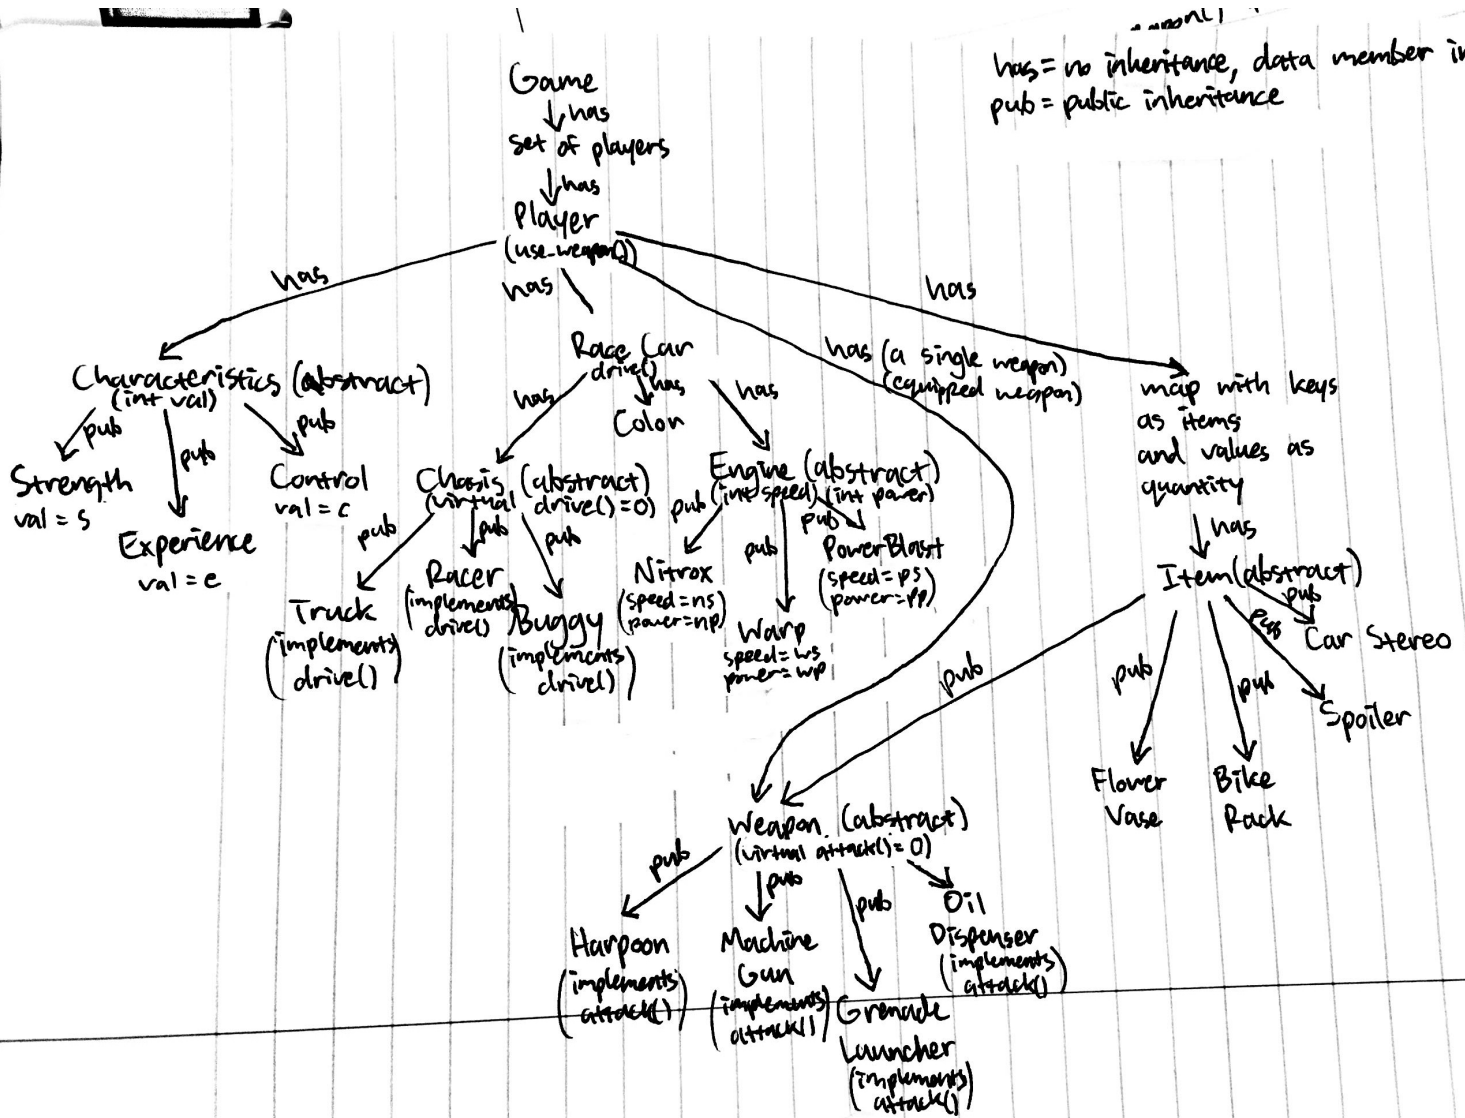 has = no inheritance, data member
pub = public inheritance
Game
has
set of players
has
Player
(use_weapon())
has
has
has
has (a single weapon)
(equipped weapon)
Characteristics (abstract)
(int val)
pub
pub
pub
Strength
val = s
Experience
val = e
Control
val = c
Race Car
drive()
has
has
has
Color
Chasis (abstract)
(virtual drive()=0)
pub
pub
pub
Truck
(implements
drive())
Racer
(implements
drive())
Buggy
(implements
drive())
Engine (abstract)
(int speed) (int power)
pub
pub
pub
Nitrox
(speed=ns
power=np)
Warp
speed=ws
power=wp
PowerBlast
(speed=ps
power=pp)
map with keys
as items
and values as
quantity
has
Item (abstract)
pub
pub
pub
pub
pub
Car Stereo
Spoiler
Flower
Vase
Bike
Rack
Weapon (abstract)
(virtual attack()=0)
pub
pub
pub
Harpoon
(implements
attack())
Machine
Gun
(implements
attack())
Grenade
Launcher
(implements
attack())
Oil
Dispenser
(implements
attack())